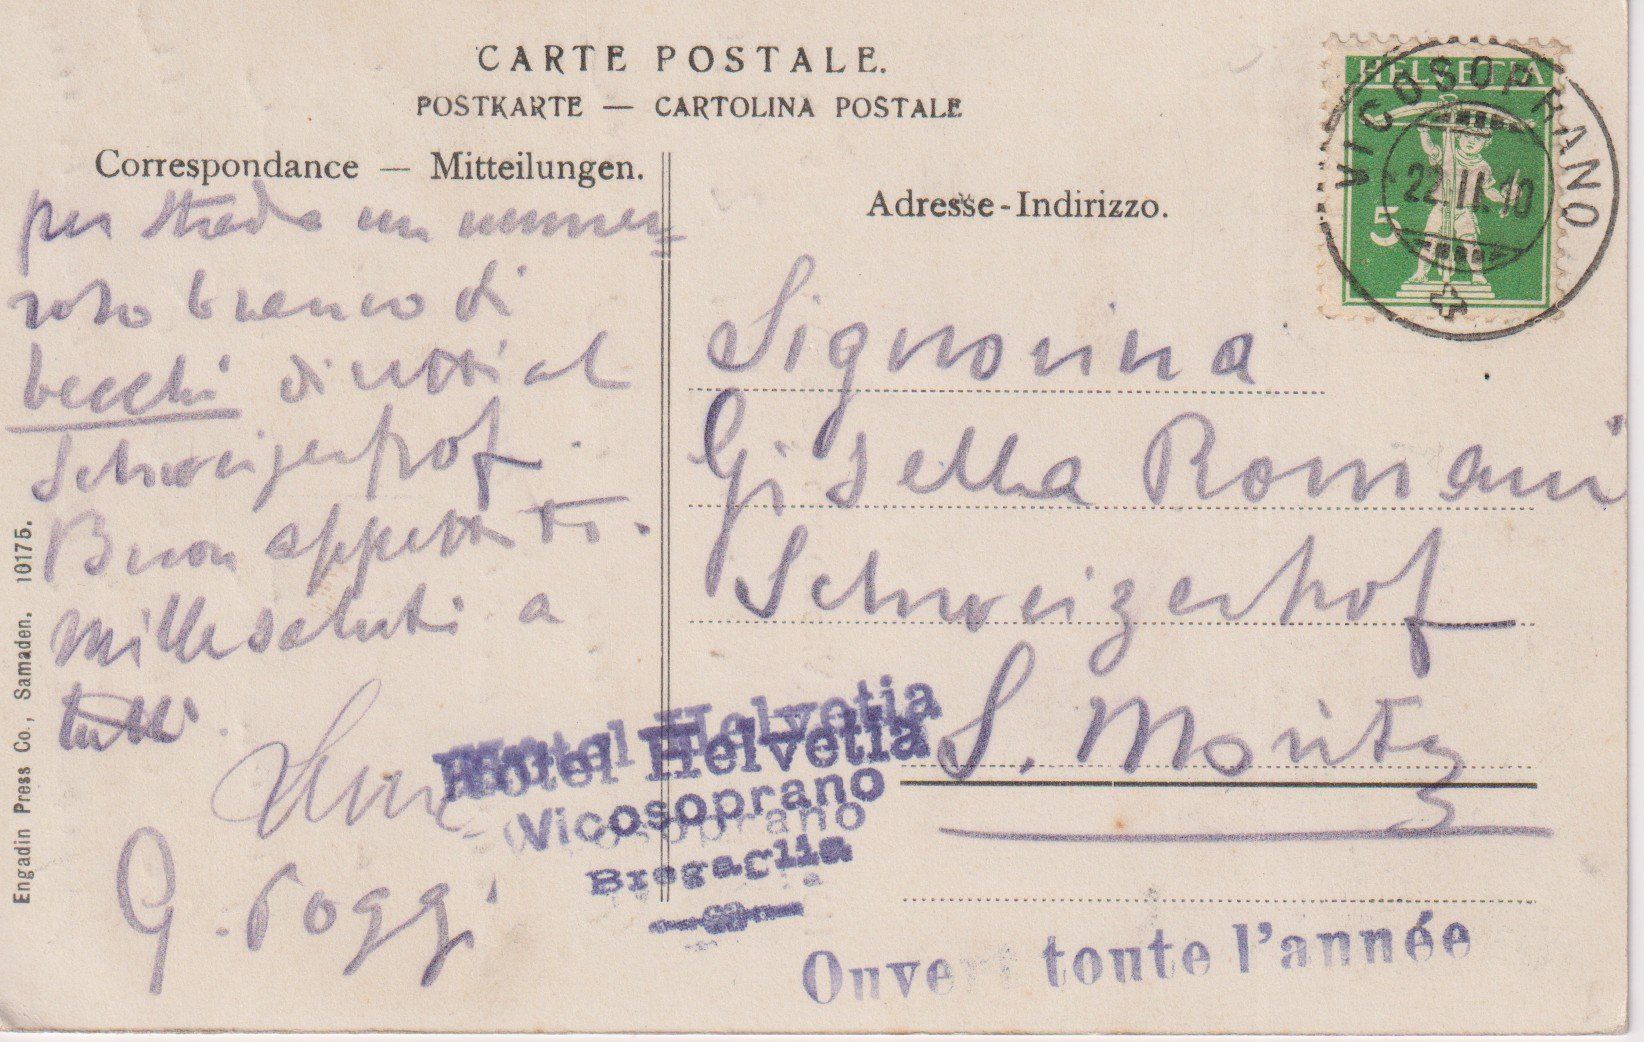 CARTE POSTALE.
POSTKARTE — CARTOLINA POSTALE
Correspondance — Mitteilungen.
Adresse-Indirizzo.
HELVETIA
5
VICOSOPRANO
22.II.10
per strada un nume-
roso branco di
becchi diretti al
Schweizerhof.
Buon appetito.
Mille saluti a
tutti.
G. Poggi
Signorina
Gisella Romani
Schweizerhof
S. Moritz
Hôtel Helvetia
Vicosoprano
Bregaglia
Ouvert toute l'année
Engadin Press Co., Samaden. 10175.